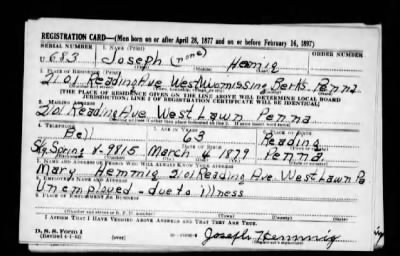 REGISTRATION CARD—(Men born on or after April 28, 1877 and on or before February 16, 1897)
SERIAL NUMBER 1. NAME (Print) ORDER NUMBER
U683 Joseph (none) Hemmig
2. PLACE OF RESIDENCE (Print)
2101 Reading Ave West Wyomissing Berks. Penna
[THE PLACE OF RESIDENCE GIVEN ON THE LINE ABOVE WILL DETERMINE LOCAL BOARD
JURISDICTION; LINE 2 OF REGISTRATION CERTIFICATE WILL BE IDENTICAL]
3. MAILING ADDRESS
2101 Reading Ave West Lawn Penna
4. TELEPHONE 5. AGE IN YEARS 6. PLACE OF BIRTH
Bell 63 Reading
DATE OF BIRTH
Sg. Spring 8-9815 March 4 1879 Penna
7. NAME AND ADDRESS OF PERSON WHO WILL ALWAYS KNOW YOUR ADDRESS
Mary Hemmig 2101 Reading Ave. West Lawn Pa
8. EMPLOYER'S NAME AND ADDRESS
Unemployed - due to illness
9. PLACE OF EMPLOYMENT OR BUSINESS
I AFFIRM THAT I HAVE VERIFIED ABOVE ANSWERS AND THAT THEY ARE TRUE.
D. S. S. Form 1
(Revised 4-1-42) (over) Joseph Hemmig